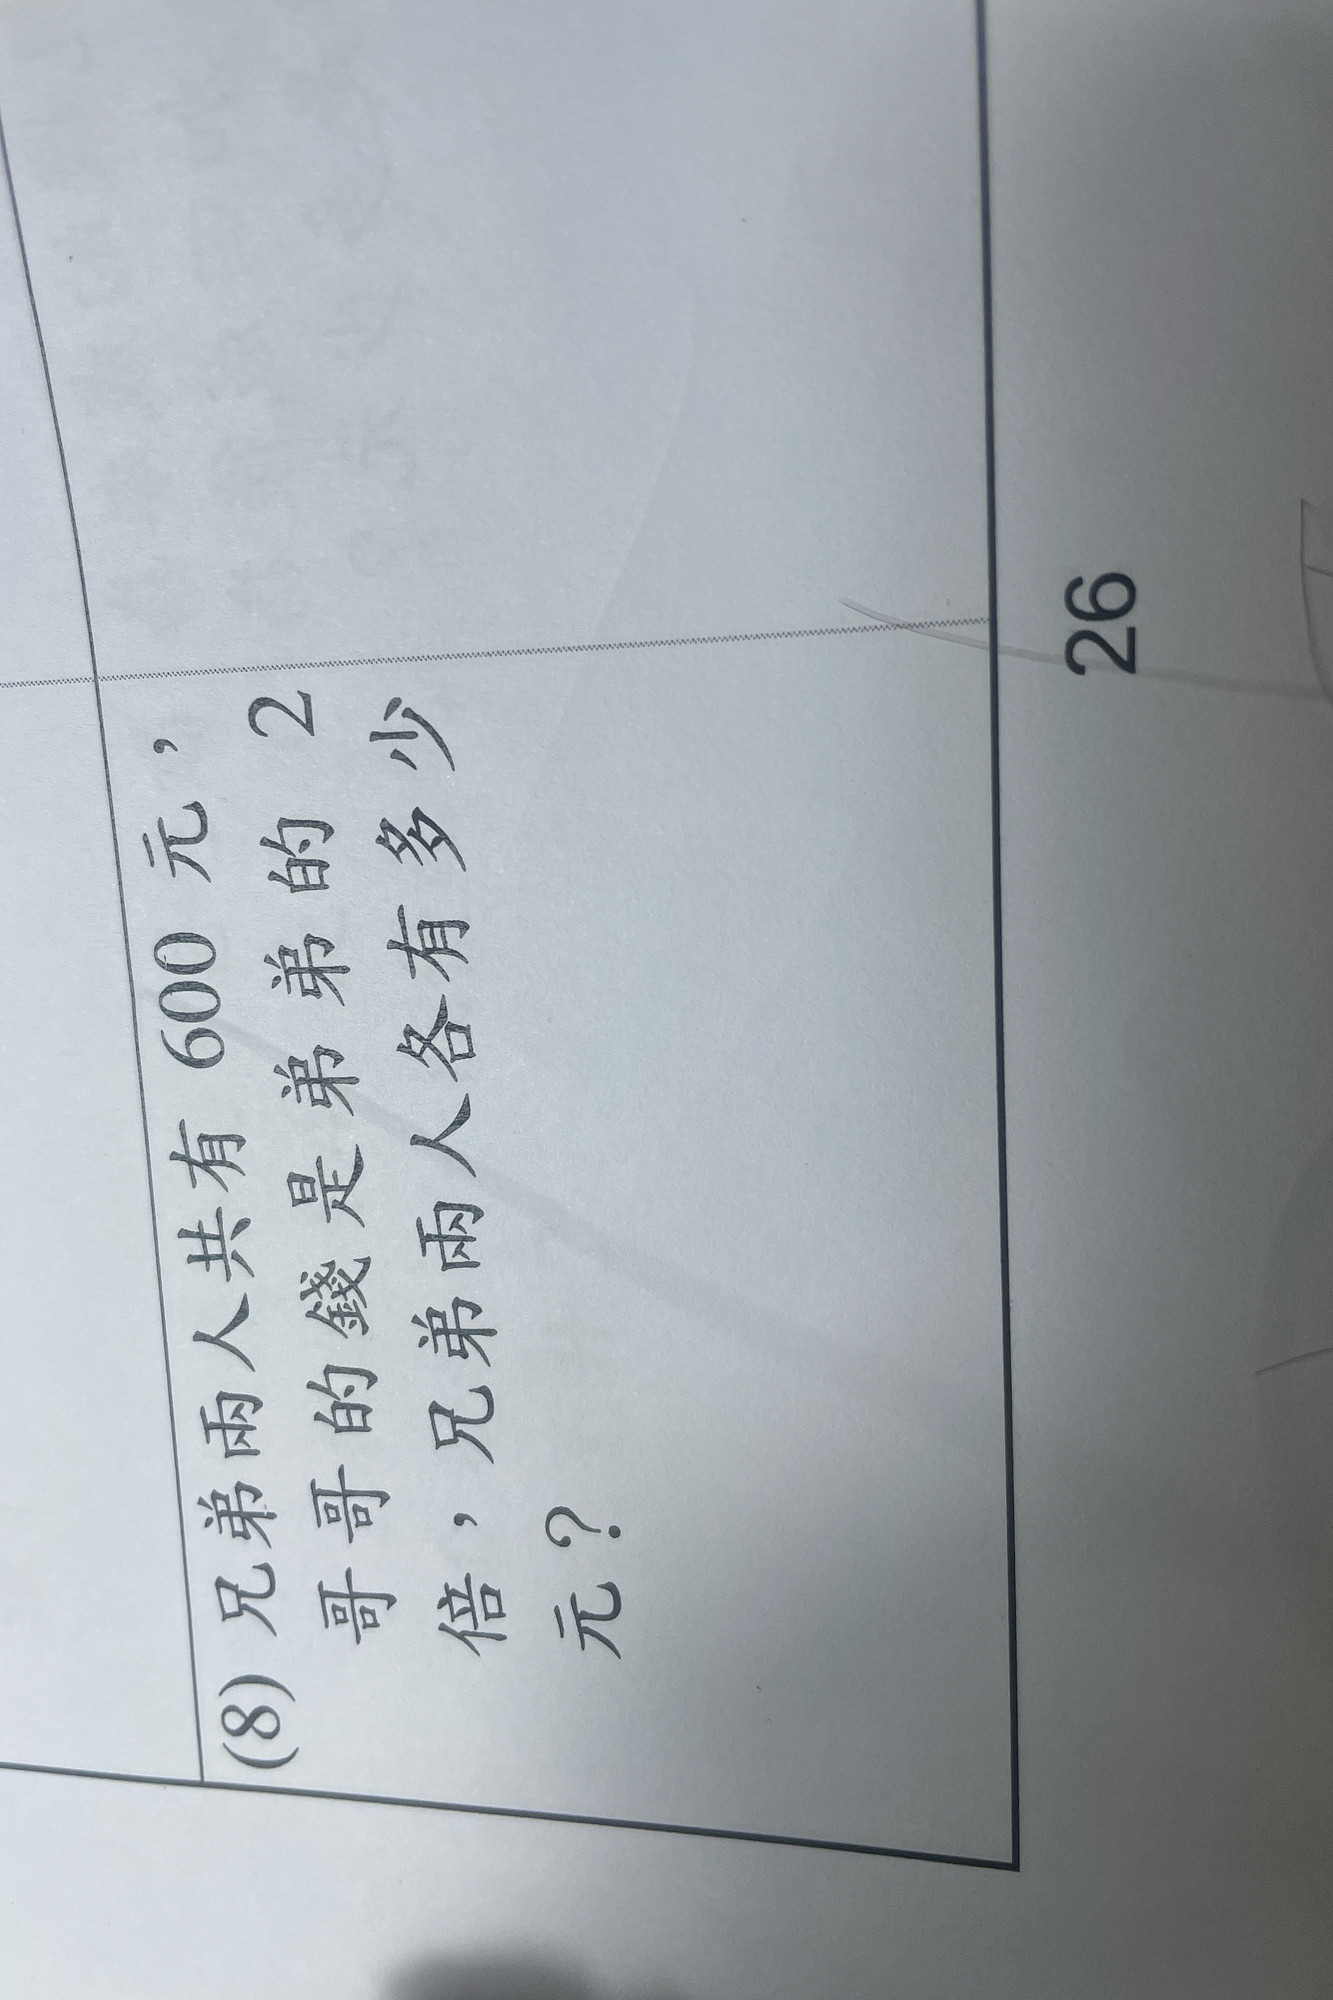 (8) 兄弟兩人共有 600 元，
哥哥的錢是弟弟的 2
倍，兄弟兩人各有多少
元？
26